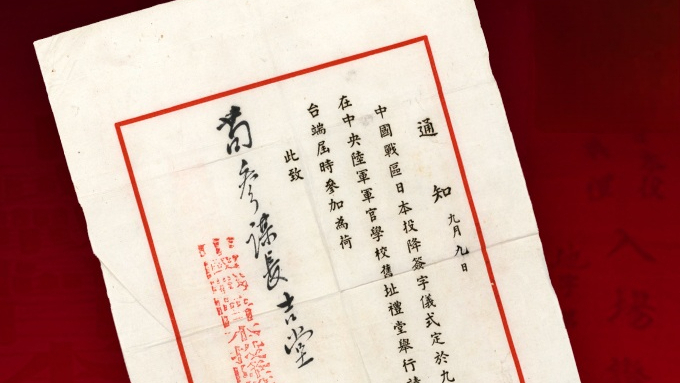 通知 九月九日
中國戰區日本投降簽字儀式定於九
在中央陸軍軍官學校舊址禮堂舉行請
台端屆時參加為荷
此致
苟參謀長吉堂
入場